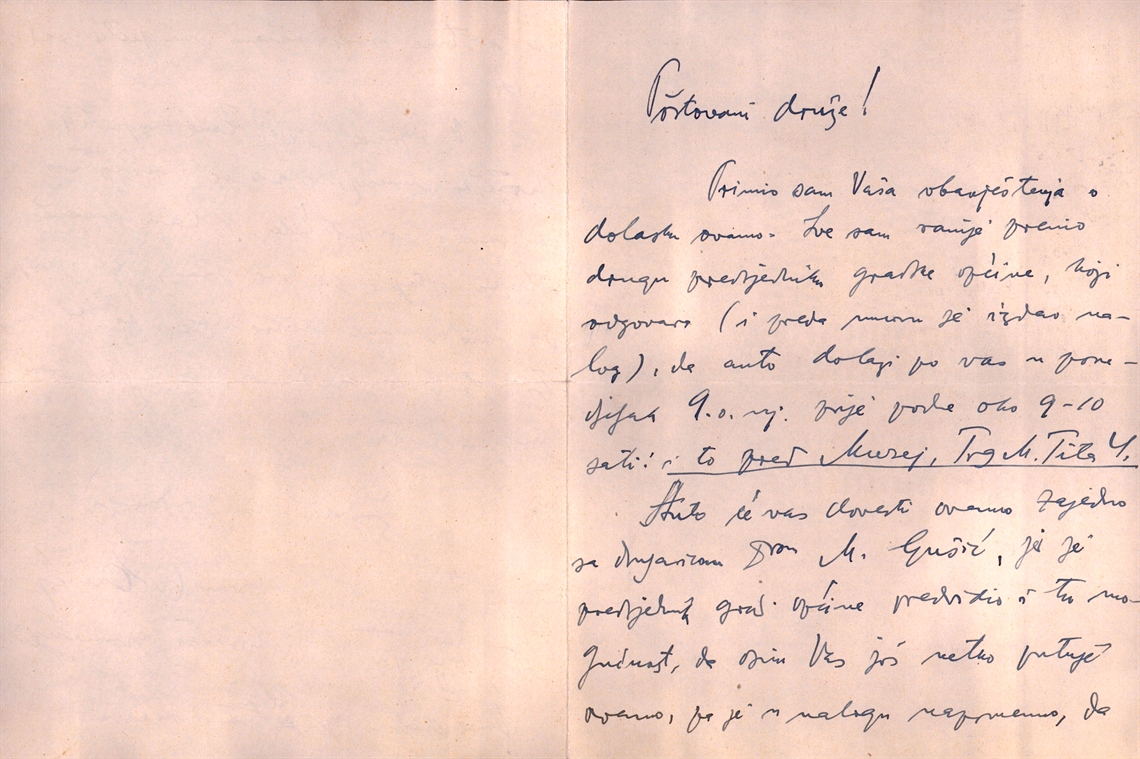 Poštovani druže!
Primio sam Vaša obavještenja o
dolasku ovamo. Sve sam ranije prenio
drugu predsjedniku gradske općine, koji
odgovara (i preda mnom je izdao na-
log), da auto dolazi po vas u pone-
djeljak 9. o. mj. prije podne oko 9-10
sati: i to pred Muzej, Trg M. Tita 4.
Auto će vas dovesti ovamo zajedno
sa drugaricom Drom M. Gušić, jer je
predsjednik grad. općine predvidio i tu mo-
gućnost, da osim Vas još netko putuje
ovamo, pa je u nalogu napomenuo, da